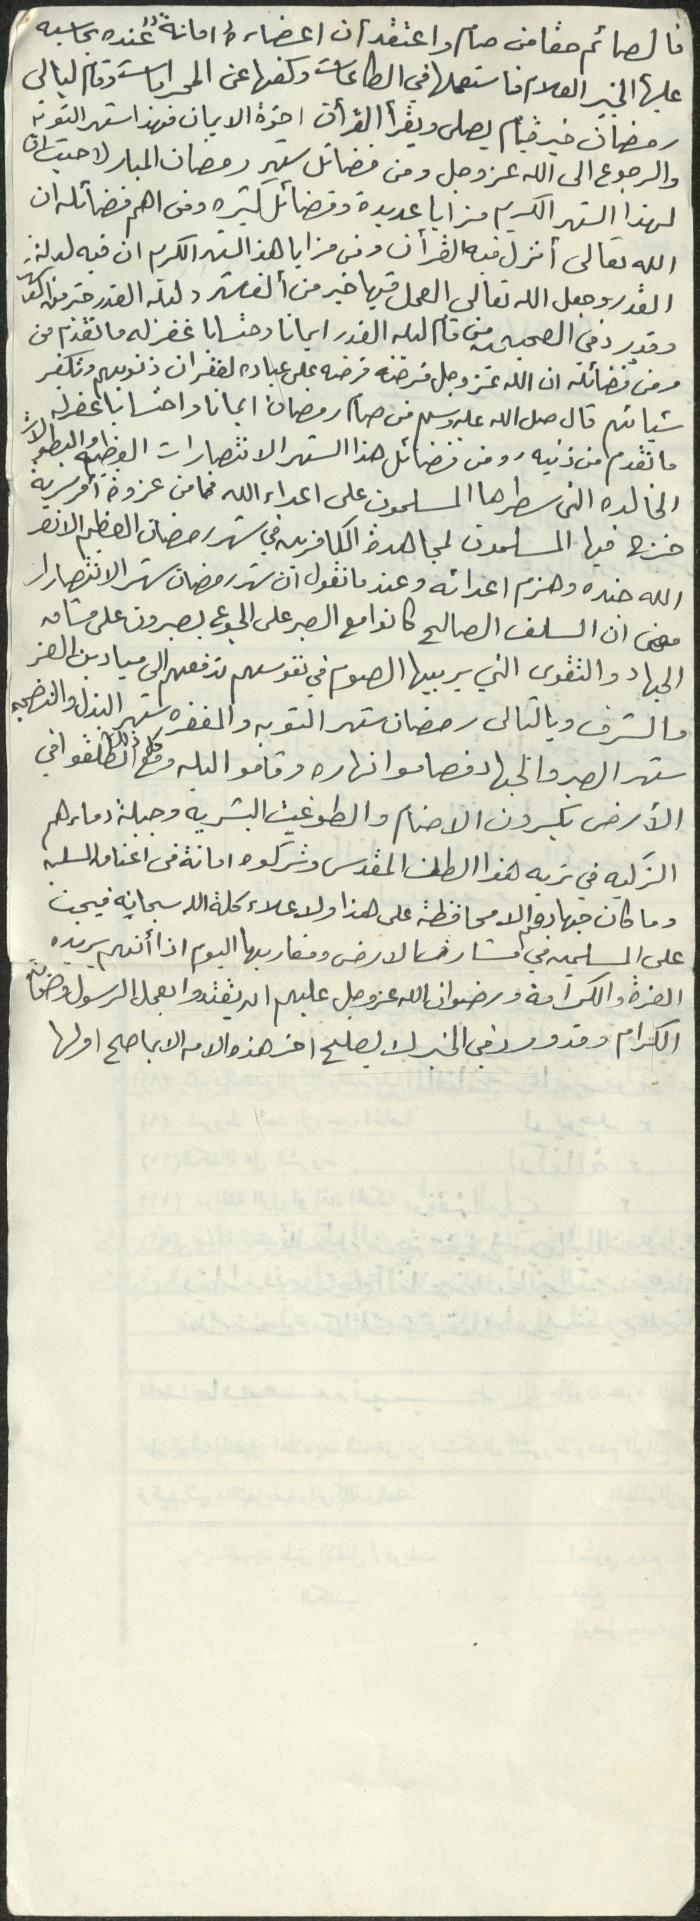 فالصائم حقا من صام واعتقد أن اعضاءه امانة عنده يحاسبه
عليها الخبير العلام فاستعملها في الطاعات وكفها عن المحرمات وقام ليالي
رمضان خير قيام يصلي ويقرأ القرآن اخوة الايمان فهذا شهر التوبة
والرجوع الى الله عز وجل ومن فضائل شهر رمضان المبارك حيث ان
لهذا الشهر الكريم مزايا عديدة وفضائل كثيره ومن اهم فضائله ان
الله تعالى أنزل فيه القرآن ومن مزايا هذا الشهر الكريم ان فيه ليلة
القدر وجعل الله تعالى العمل فيها خير من ألف شهر وليلة القدر خير من الف شهر
وقد ورد في الصحيحين من قام ليله القدر ايمانا واحتسابا غفر له ما تقدم من
ومن فضائله ان الله عز وجل فرضه على عباده لغفران ذنوبهم وتكفير
سيئاتهم قال صلى الله عليه وسلم من صام رمضان ايمانا واحتسابا غفر له
ما تقدم من ذنبه ومن فضائل هذا الشهر الانتصارات العظيمه والبطولات
الخالده التي سطرها المسلمون على اعداء الله فما من غزوة أو سرية
خرج فيها المسلمون لمجاهدة الكافرين في شهر رمضان العظيم الا نصر
الله جنده وهزم اعدائه وعندما نقول ان شهر رمضان شهر الانتصارات
معنى ان السلف الصالح كانوا مع الصبر على الجوع يصبرون على مشاق
الجهاد والتقوى التي يربيها الصوم في نفوسهم تدفعهم الى ميادين العز
والشرف وبالتالي رمضان شهر التوبه والمغفره شهر البذل والتضحيه
شهر الصبر والجهاد فصاموا نهاره وقاموا ليله ومع ذلك انطلقوا في
الأرض يكسرون الاصنام والطواغيت البشريه وجبلة دماءهم
الزكيه في تربه هذا الوطن المقدس وتركوه امانة في اعناق المسلمين
وما كان جهادهم الا محافظة على هذا ولاعلاء كلمة الله سبحانه فيجب
على المسلمين في مشارق الارض ومغاربها اليوم اذا أنهم يريدون
العزة والكرامة ورضوان الله عز وجل عليهم ان يقتدوا بعمل الرسول وصحابته
الكرام وقد ورد في الخبر لا يصلح اخر هذه الامه الا بما صلح اولها